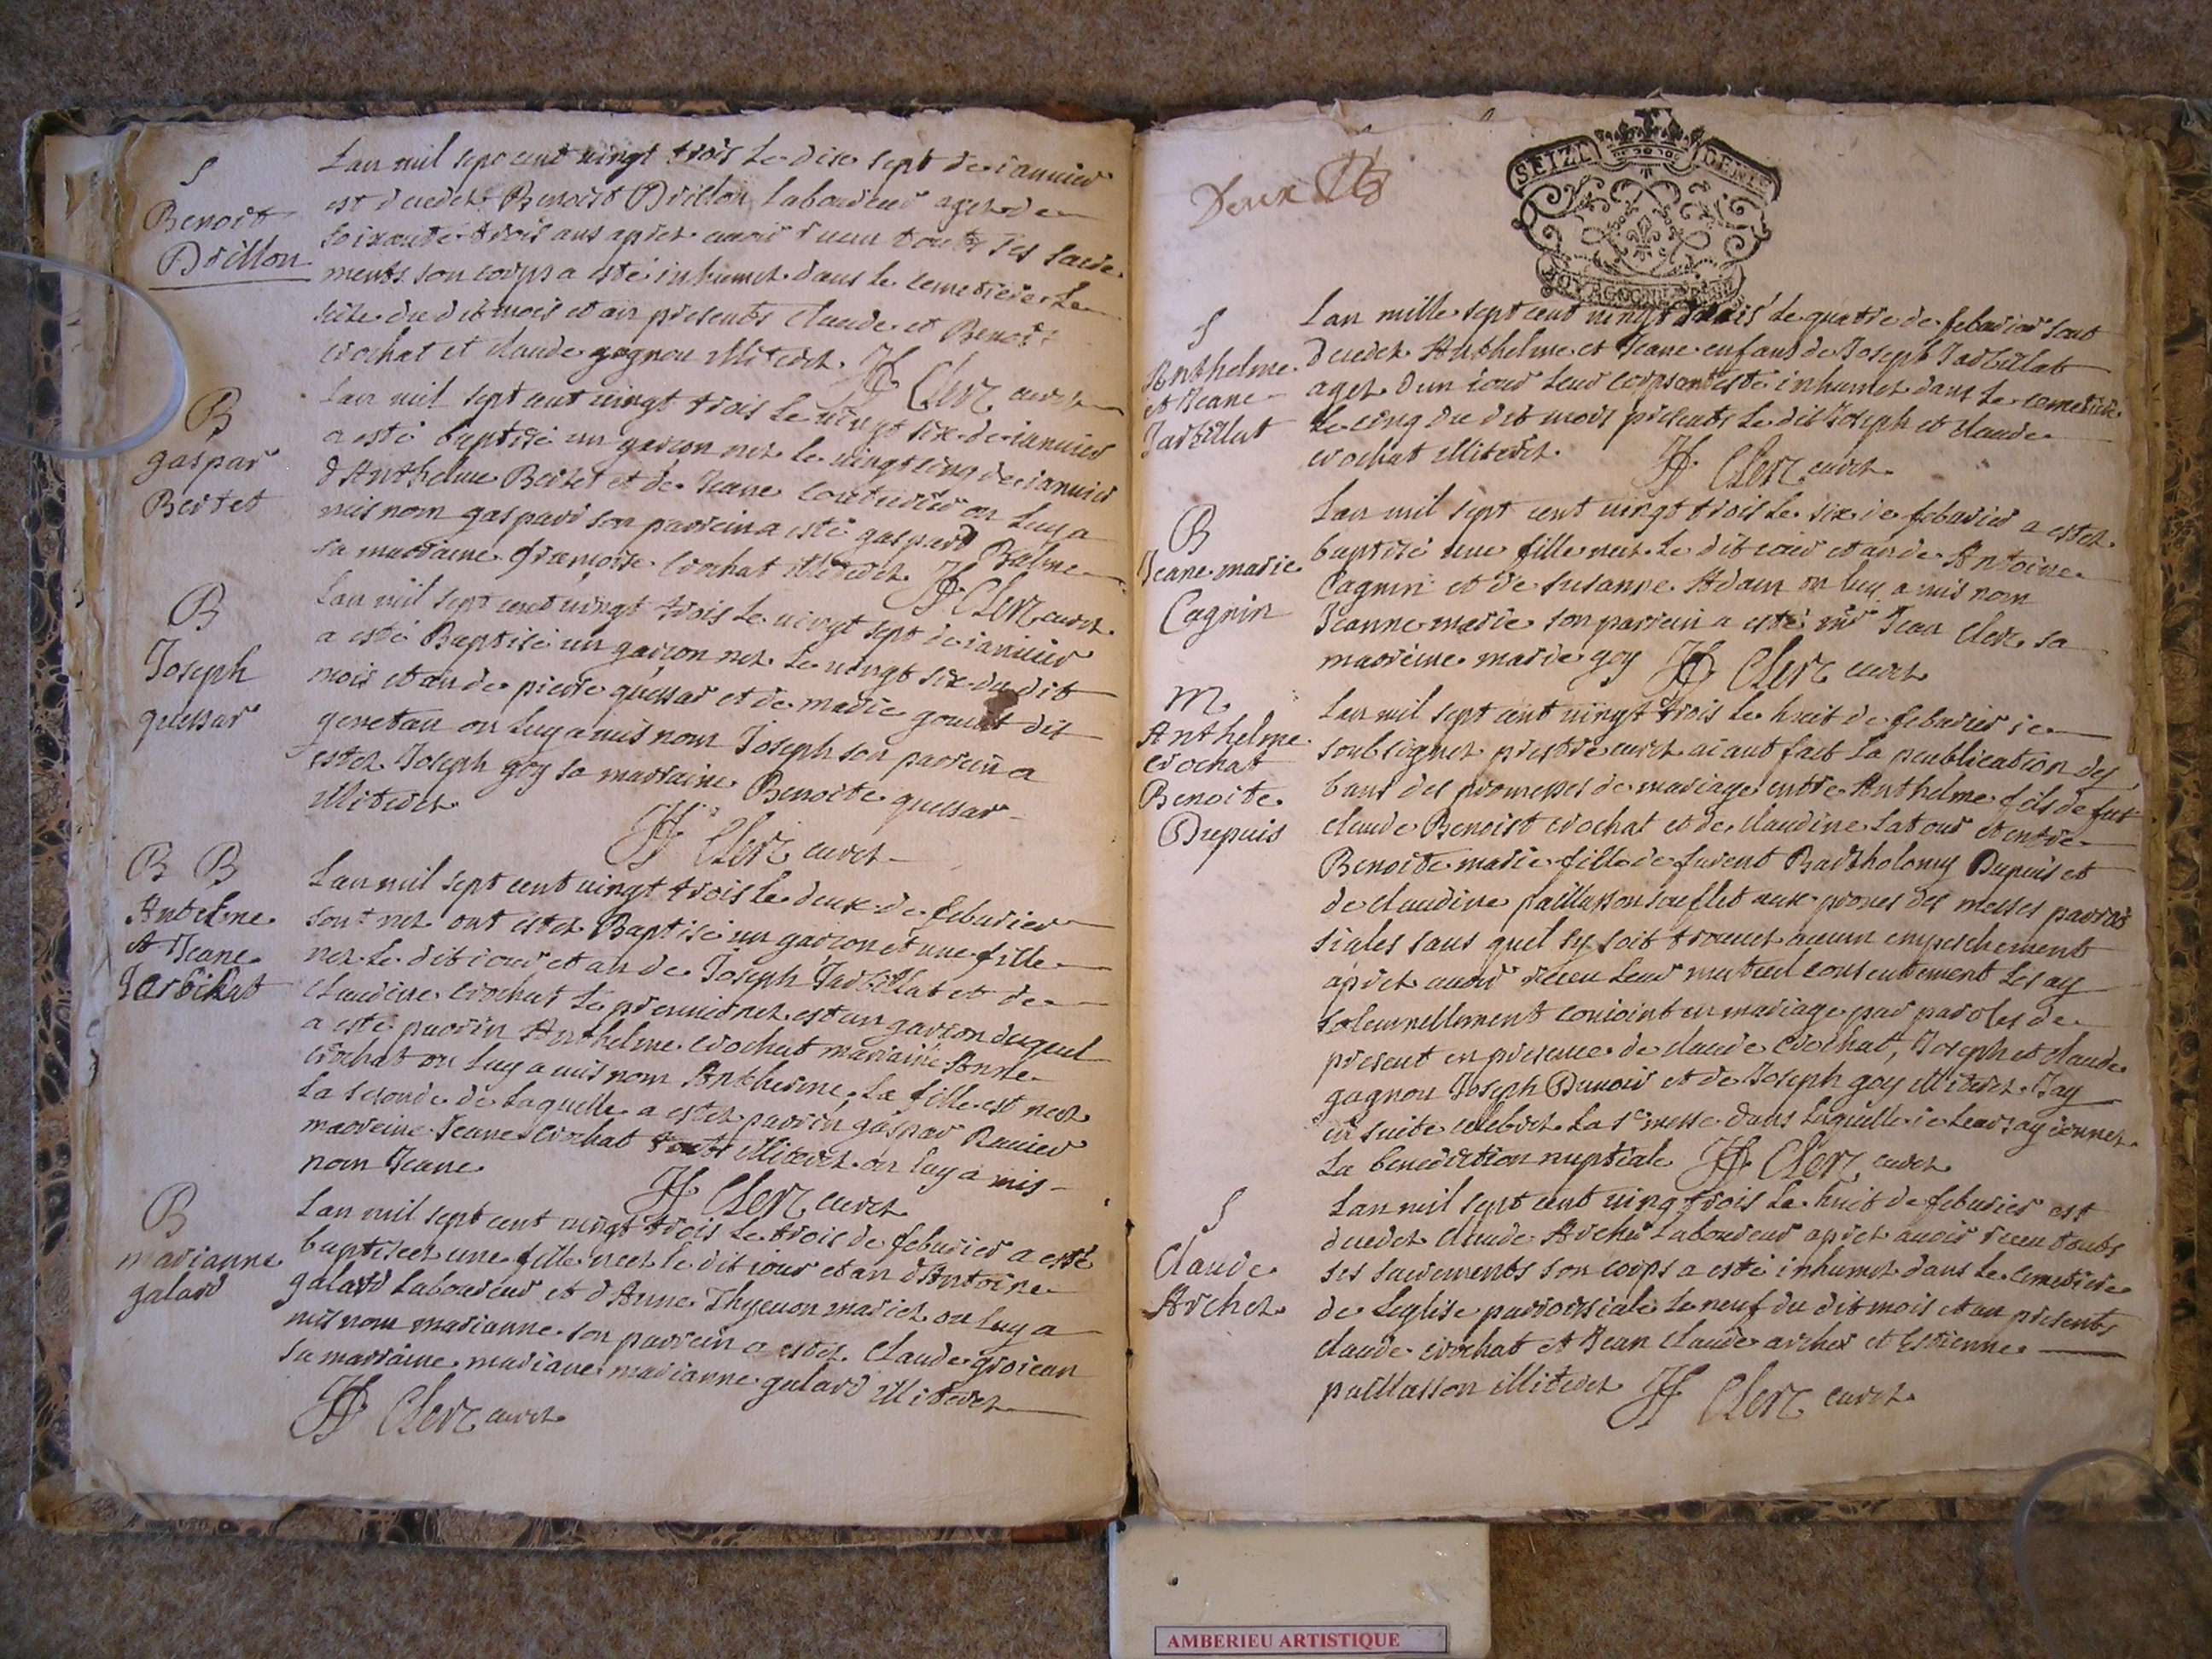 S
Benoit
Drillon
Lan mil sept cent vingt trois le dix sept de ianvier
est decedez Benoist Drillon laboureur agez de
soixante trois ans aprez avoir receu touts ses sacre
ments son corps a esté inhumez dans le cemetiere le
dudit mois et an presents Claude et Benoit
crochat et claude gagnou illiterez JF Clerc curez
B
gaspar
Bertet
Lan mil sept cent vingt trois le vingt six de ianvier
a esté baptisé un garcon nez le vingt cinq de ianvier
d'Anthelme Bertet et de Jeane couturier on luy a
mis nom gaspard son parrein a esté gaspard Balme
sa marraine francoise Crochat illiterez JF Clerc curez
B
Joseph
quessar
Lan mil sept cent vingt trois le vingt sept de ianvier
a esté Baptisé un garcon nez le vingt six du dit
mois et an de pierre quessar et de marie dit
genetan on luy a mis nom Joseph son parrein a
estez Joseph goy sa marraine Benoite quessar
illiterez
JF Clerc curez
B B
Antelme
et Jeane
Jarbillat
Lan mil sept cent vingt trois le deux de febvrier
sont nez ont estez Baptisé un garcon et une fille
nez le dit iour et an de Joseph Jarbillat et de
claudine crochat le premier nez est un garcon duquel
a esté parrin Anthelme crochat marraine Anne
crochat on luy a mis nom Anthelme, La fille est nez
la seconde de laquelle a estez parrin gaspar Ravier
marreine Jeane Crochat touts illiterez on luy a mis
nom Jeane
JF Clerc curez
B
marianne
galard
Lan mil sept cent vingt trois le trois de febvrier a esté
baptiseez une fille neez le dit iour et an d'Antoine
galard laboureur et d'Anne Thyevon mariez on luy a
mis nom marianne son parrein a estez Claude grosiean
sa marraine mariane marianne galard illiterez
JF Clerc curez
Deux
SEIZE DENIE
S
Anthelme
et Jeane
Jarbillat
Lan mille sept cent vingt trois le quatre de febvrier sont
decedez Anthelme et Jeane enfans de Joseph Jarbillat
agez d'un iour leur corps ont esté inhumez dans le cemetiere
le cinq du dit mois presents le dit Joseph et claude
crochat illiterez. JF Clerc curez
B
Jeane marie
Cagnin
Lan mil sept cent vingt trois le six de febvrier a estez
baptisé une fille neez le dit iour et an de Antoine
Cagnin et de susanne Adam on luy a mis nom
Jeanne marie son parrein a esté mr Jean Clerc sa
marreine marie goy JF Clerc curez
M
Anthelme
crochat
Benoite
Dupuis
Lan mil sept cent vingt trois le huit de febvrier ie
soubsignez prestre curez aiant fait la peublication des
bans des promesses de mariage entre Anthelme fils de fut
claude Benoist crochat et de claudine Latour et entre
Benoite marie fille de furent Bartholomy Dupuis et
de claudine paillasson souflet aux prones des messes parrois
siales sans quel sy soit trouvez aucun empeschement
aprez avoir receu leur mutuel consentement les ay
solemnellement conioint en mariage par paroles de
present en presence de claude Crochat, Joseph et claude
gagnou Joseph Dunoir et de Joseph goy illiterez Jay
en suite celebrez la ste messe dans laquelle ie leur ay donnez
la benediction nuptiale JF Clerc curez
S
Claude
Archez
Lan mil sept cent ving trois le huit de febvrier est
decedez claude Archer laboureur aprez avoir receu touts
ses sacrements son corps a esté inhumez dans le cemetiere
de Leglise parroissiale le neuf du dit mois et an presents
claude crochat et Jean claude archer et Estienne
paillasson illiterez JF Clerc curez
AMBERIEU ARTISTIQUE